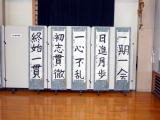 一期一会
日進月歩
一心不乱
初志貫徹
終始一貫